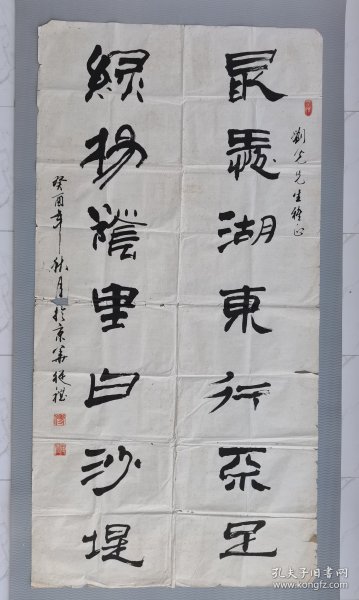 劉光先生雅正
最愛湖東行不足
綠楊蔭里白沙堤
癸酉年秋月於京華
孔夫子旧书网